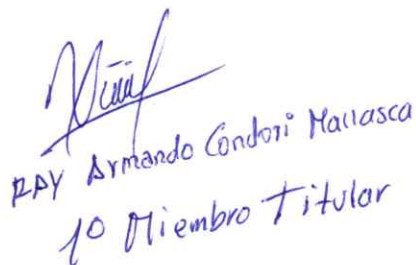 RAY Armando Condori Mallasca
1º Miembro Titular